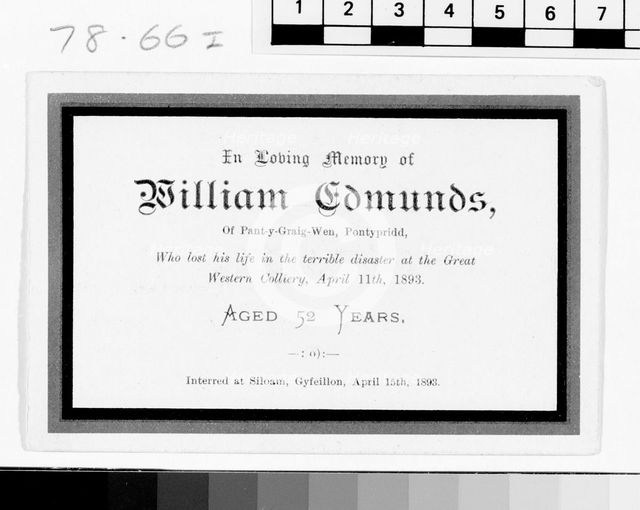 78.66 I
1 2 3 4 5 6 7
In Loving Memory of
William Edmunds,
Of Pant-y-Graig-Wen, Pontypridd,
Who lost his life in the terrible disaster at the Great
Western Colliery, April 11th, 1893.
AGED 52 YEARS.
—: o):—
Interred at Siloam, Gyfeillon, April 15th, 1893.